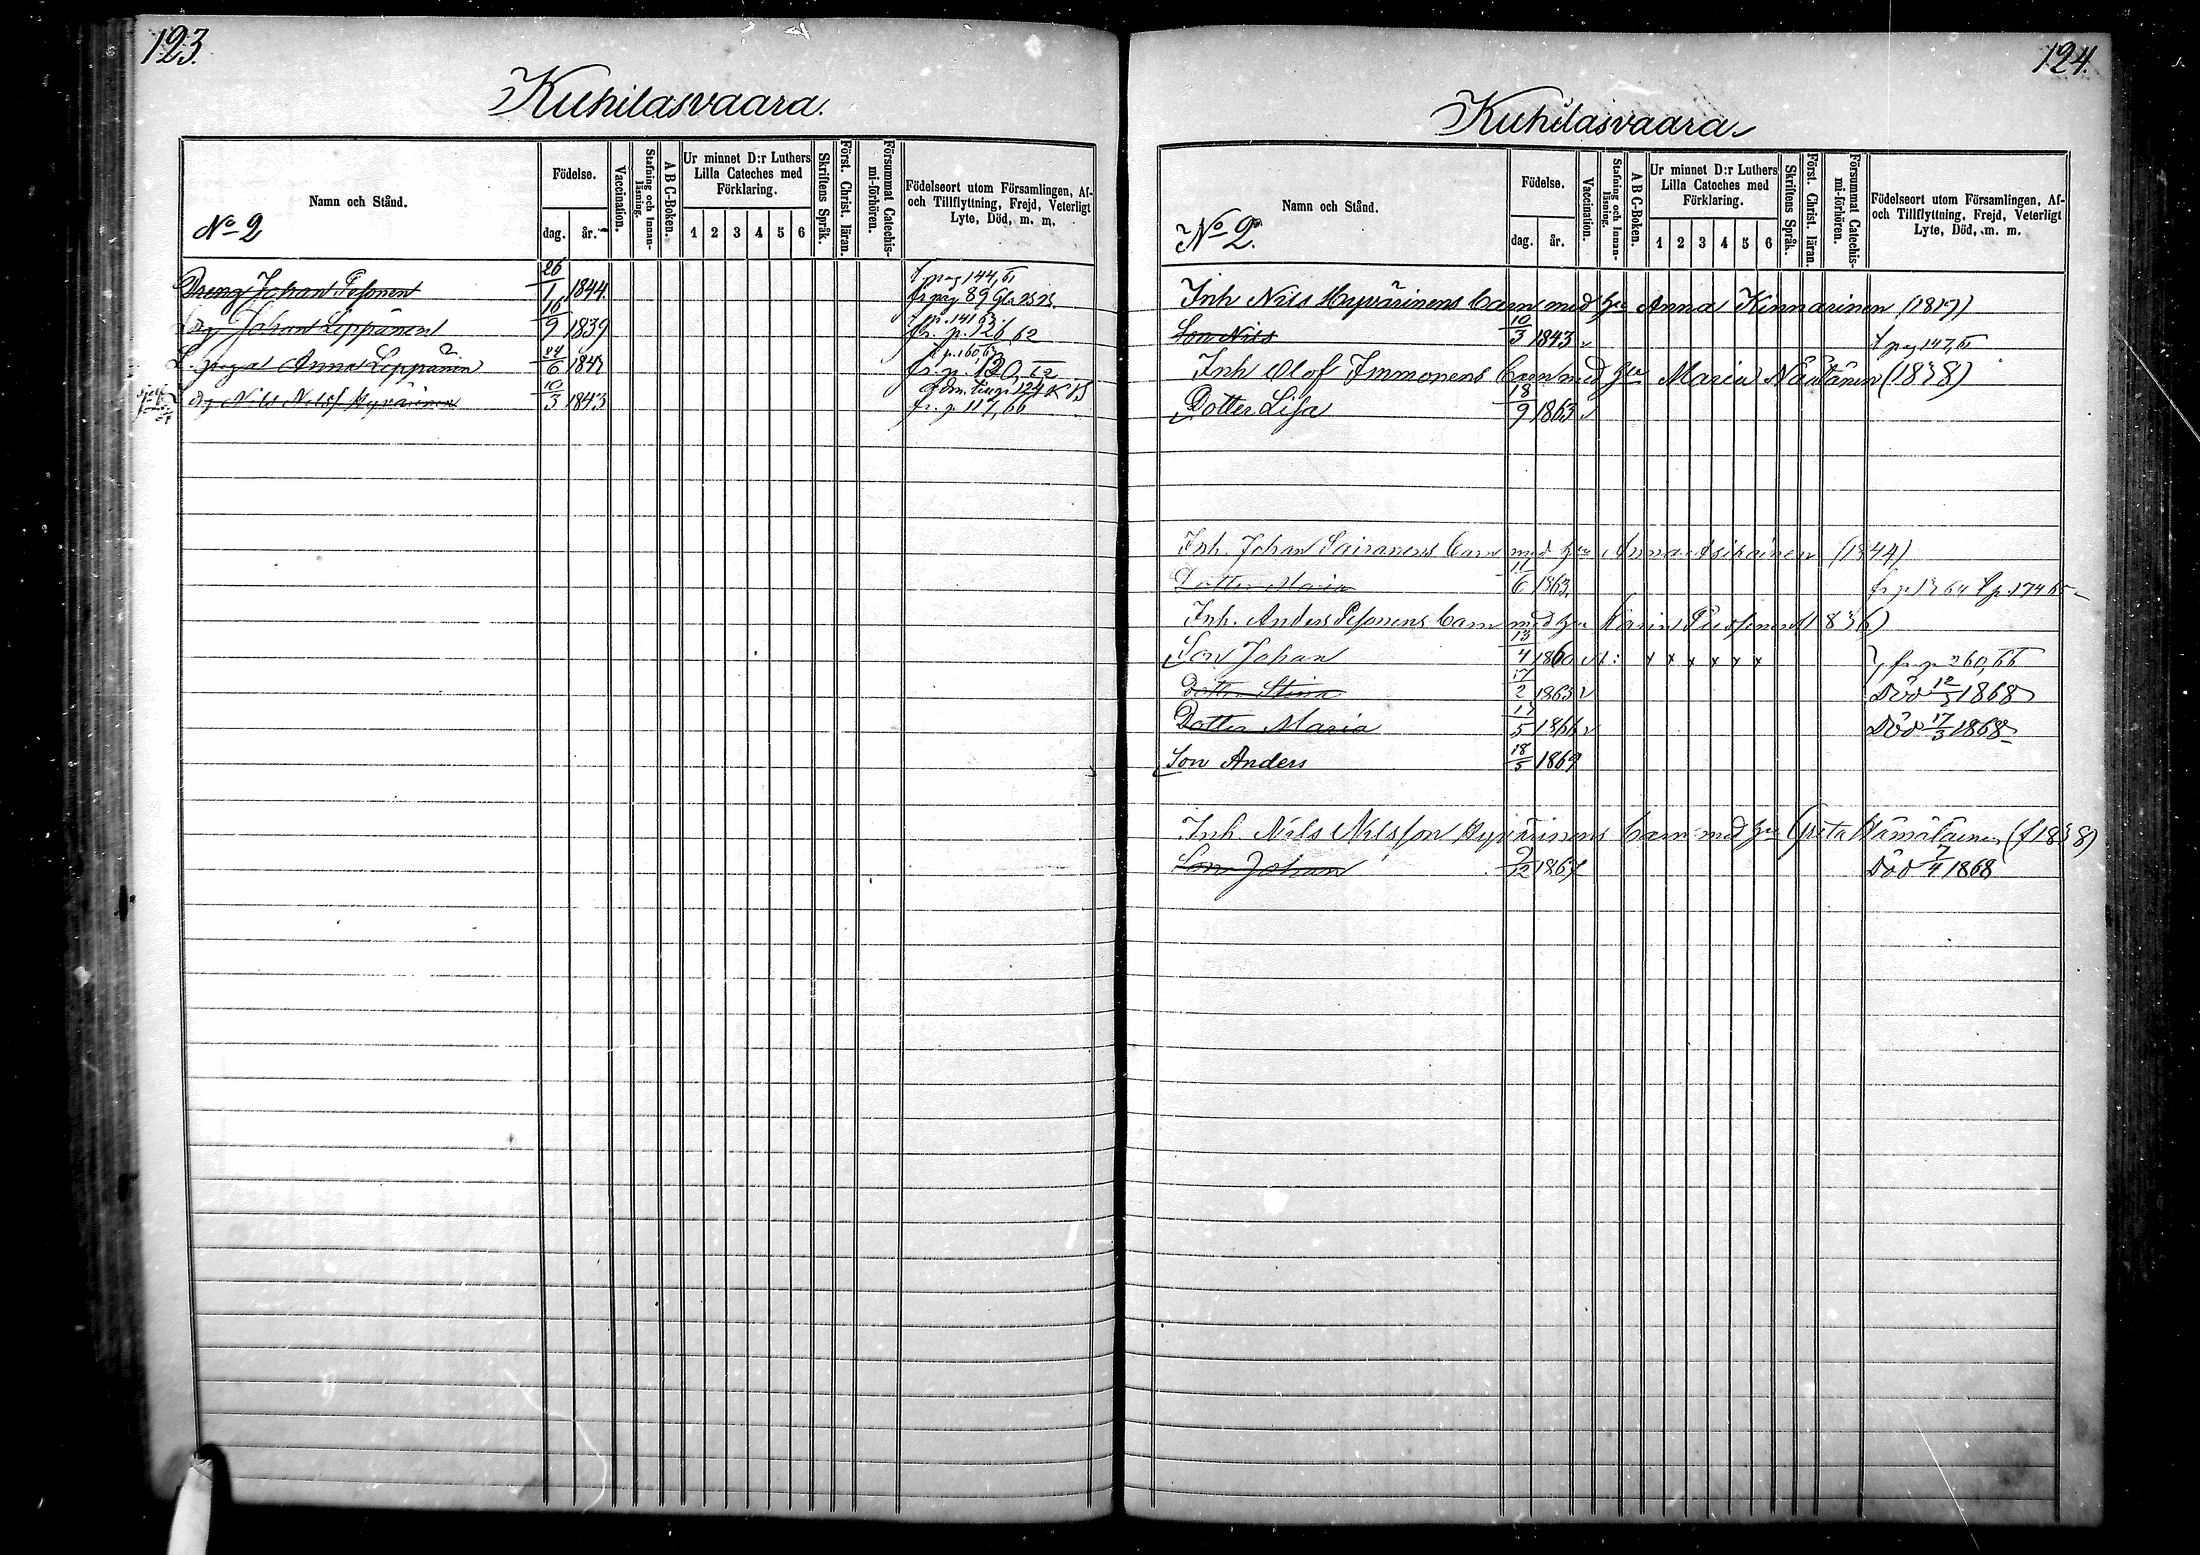 123.
Kuhilasvaara.
Namn och Stånd.
No 2
Födelse.
dag. år.
Vaccination.
Stafning och Innan-läsning.
A B C-Boken.
Ur minnet D:r Luthers
Lilla Cateches med
Förklaring.
1 2 3 4 5 6
Skriftens Språk.
Först. Christ. läran.
Försummat Catechis-mi-förhören.
Födelseort utom Församlingen, Af-
och Tillflyttning, Frejd, Veterligt
Lyte, Död, m. m.
Dreng Johan Pesonen 26/1 1844. pag 144, 61
fr pag 89
Dg Johan Leppänen 16/9 1839 fr. p. 126, 62
Anna Leppänen 24/6 1842 p. 160, 63
fr. p. 120, 62
Dg Nils Nilsf. Hyvärinen 10/3 1843 124
fr. p. 117, 66
124.
Kuhilasvaara
Namn och Stånd.
No 2.
Födelse.
dag. år.
Vaccination.
Stafning och Innan-läsning.
A B C-Boken.
Ur minnet D:r Luthers
Lilla Cateches med
Förklaring.
1 2 3 4 5 6
Skriftens Språk.
Först. Christ. läran.
Försummat Catechis-mi-förhören.
Födelseort utom Församlingen, Af-
och Tillflyttning, Frejd, Veterligt
Lyte, Död, m. m.
Inh Nils Hyvärinens barn med hu Anna Kinnarinen (1819)
Son Nils 10/3 1843 pag 147, 61
Inh Olof Immonens barn med hu Maria Näätänen (1838)
Dotter Lisa 18/9 1863
Inh. Johan Sairanens barn med hu Anna Asikainen (1844)
Dotter Maria 11/6 1863. p. 174
Inh. Anders Pesonens barn med hu Karin (1836)
Son Johan 13/4 1860 x x x x x x fr p 260, 66
Dotter Stina 17/2 1863 Död 12/3 1868
Dotter Maria 17/5 1866 Död 17/3 1868
Son Anders 18/5 1869
Inh Nils Nilsson Hyvärinens barn med hu Greta Hämäläinen (f 1838)
Son Johan 9/12 1867 Död 7/4 1868